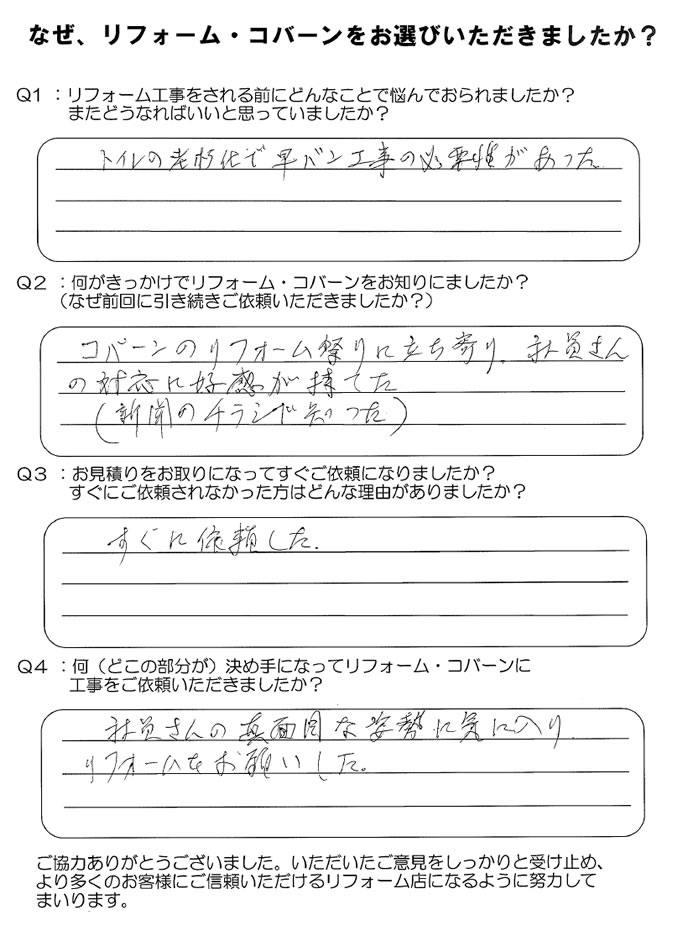 なぜ、リフォーム・コバーンをお選びいただきましたか？
Q1 ：リフォーム工事をされる前にどんなことで悩んでおられましたか？
またどうなればいいと思っていましたか？
トイレの老朽化で早バン工事の必要性があった.
Q2 ：何がきっかけでリフォーム・コバーンをお知りにましたか？
（なぜ前回に引き続きご依頼いただきましたか？）
コバーンのリフォーム祭りに立ち寄り、社員さん
の対応に好感が持てた
（新聞のチラシで知った）
Q3 ：お見積りをお取りになってすぐご依頼になりましたか？
すぐにご依頼されなかった方はどんな理由がありましたか？
すぐに依頼した.
Q4 ：何（どこの部分が）決め手になってリフォーム・コバーンに
工事をご依頼いただきましたか？
社員さんの真面目な姿勢に気に入り
リフォームをお願いした。
ご協力ありがとうございました。いただいたご意見をしっかりと受け止め、
より多くのお客様にご信頼いただけるリフォーム店になるように努力して
まいります。